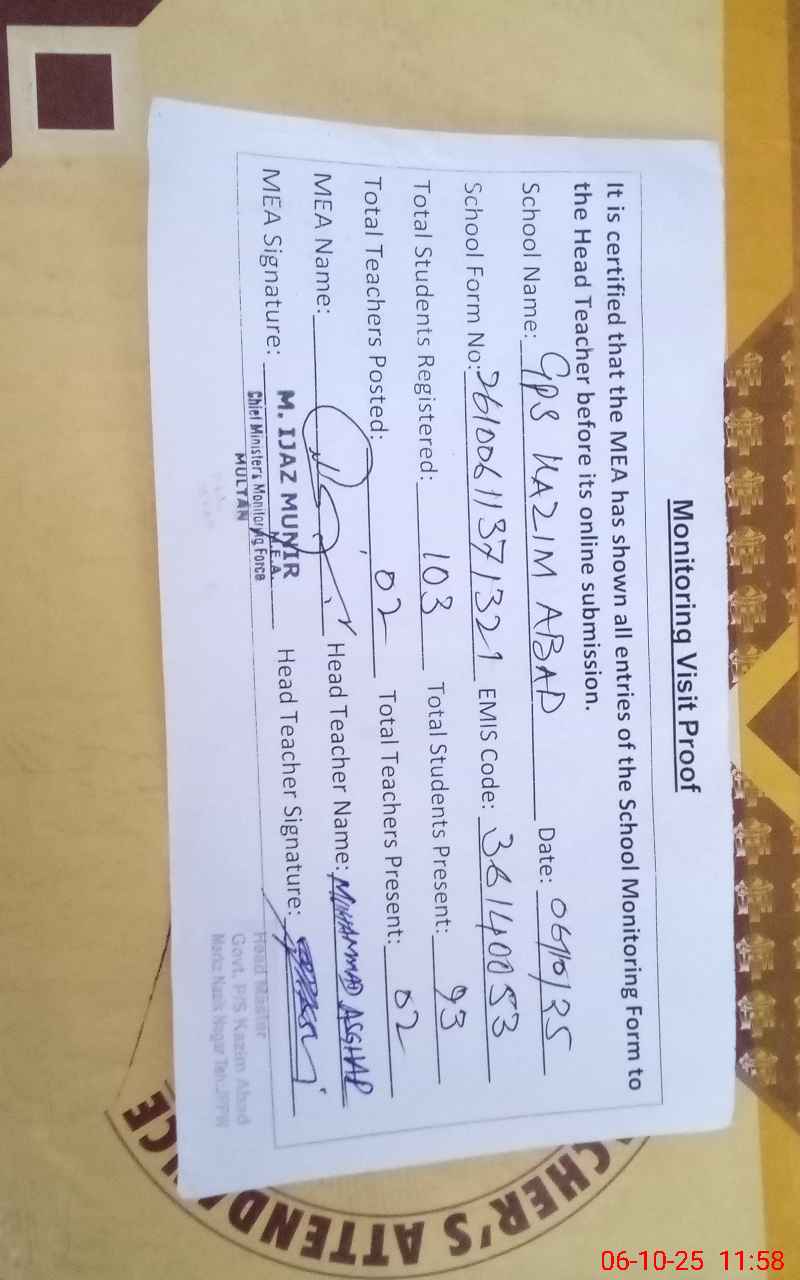 Monitoring Visit Proof
It is certified that the MEA has shown all entries of the School Monitoring Form to
the Head Teacher before its online submission.
School Name: GPS KAZIM ABAD Date: 06/10/25
School Form No: 26100611371321 EMIS Code: 36140053
Total Students Registered: 103 Total Students Present: 93
Total Teachers Posted: 02 Total Teachers Present: 02
MEA Name: Head Teacher Name: MUHAMMAD ASGHAR
MEA Signature: Head Teacher Signature:
M. IJAZ MUNIR
M.E.A.
Chief Minister's Monitoring Force
MULTAN
Head Master
Govt. P/S Kazim Abad
TEACHER'S ATTENDANCE
06-10-25 11:58